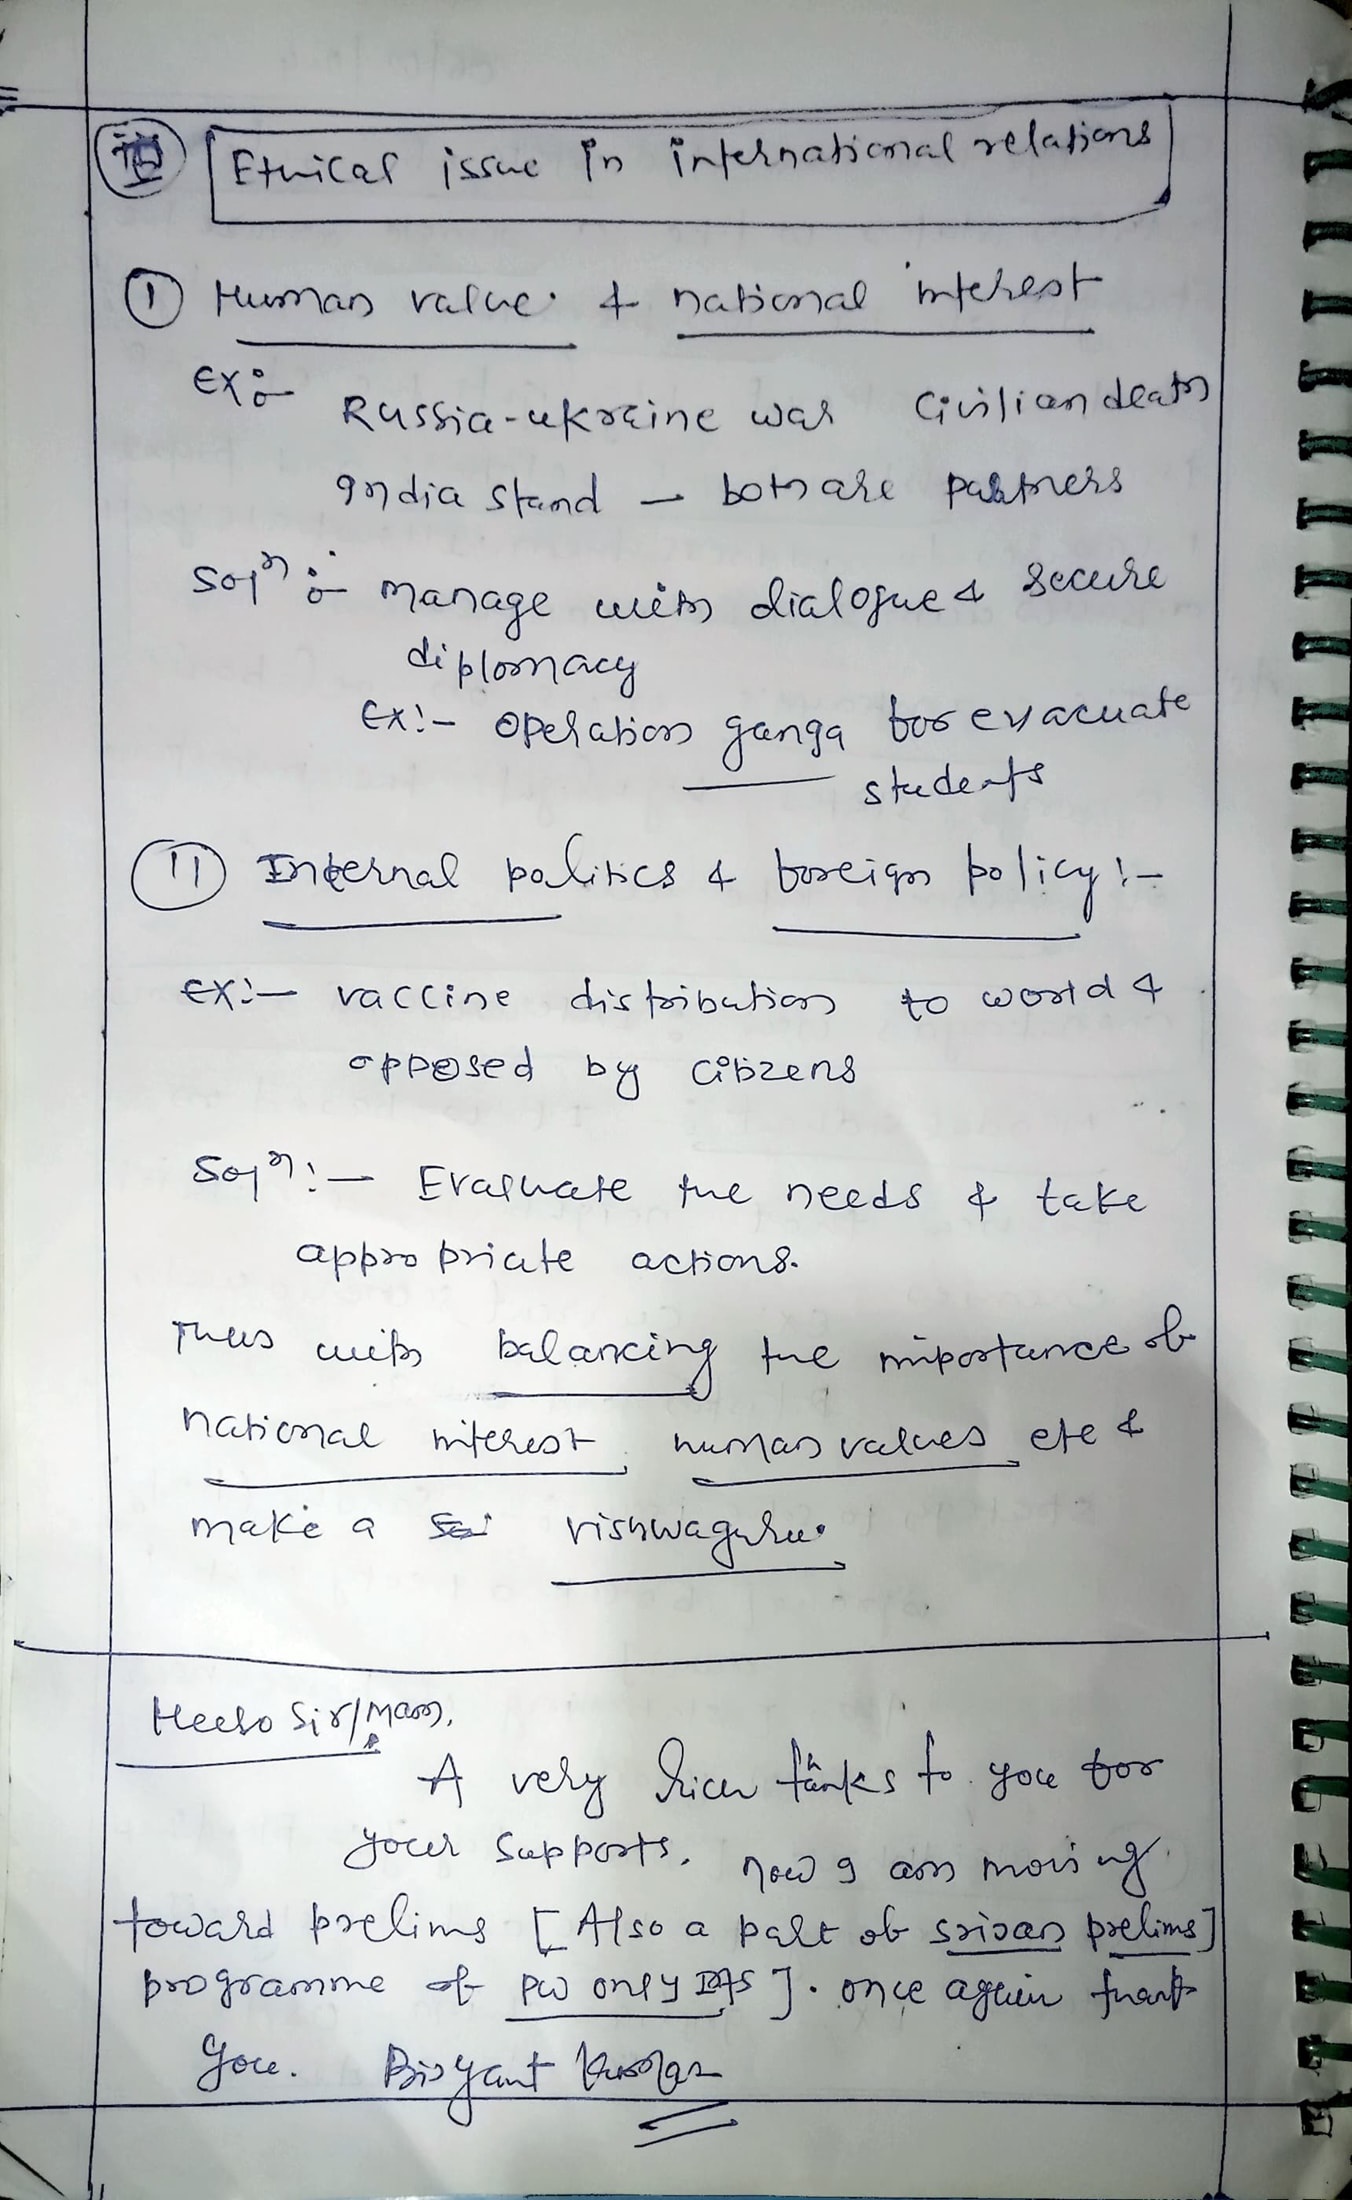 Ethical issue in international relations
① Human value & national interest
Ex:- Russia-ukraine war civilian death
India stand - both are partners
Solⁿ :- manage with dialogue & secure
diplomacy
Ex:- operation ganga for evacuate
students
⑪ Internal politics & foreign policy :-
Ex:- vaccine distribution to world &
opposed by citizens
Solⁿ :- Evaluate the needs & take
appropriate actions.
Thus with balancing the importance of
national interest, human values etc &
make a vishwaguru.
Hello Sir/Mam,
A very tanks to you for
your supports. Now I am moving
toward prelims [Also a part of prelims]
programme of PW only IAS]. once again thank
you.